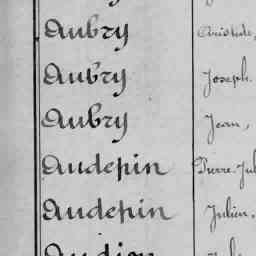 Aubry Aristide,
Aubry Joseph.
Aubry Jean,
Audepin Pierre Jul
Audepin Julien,